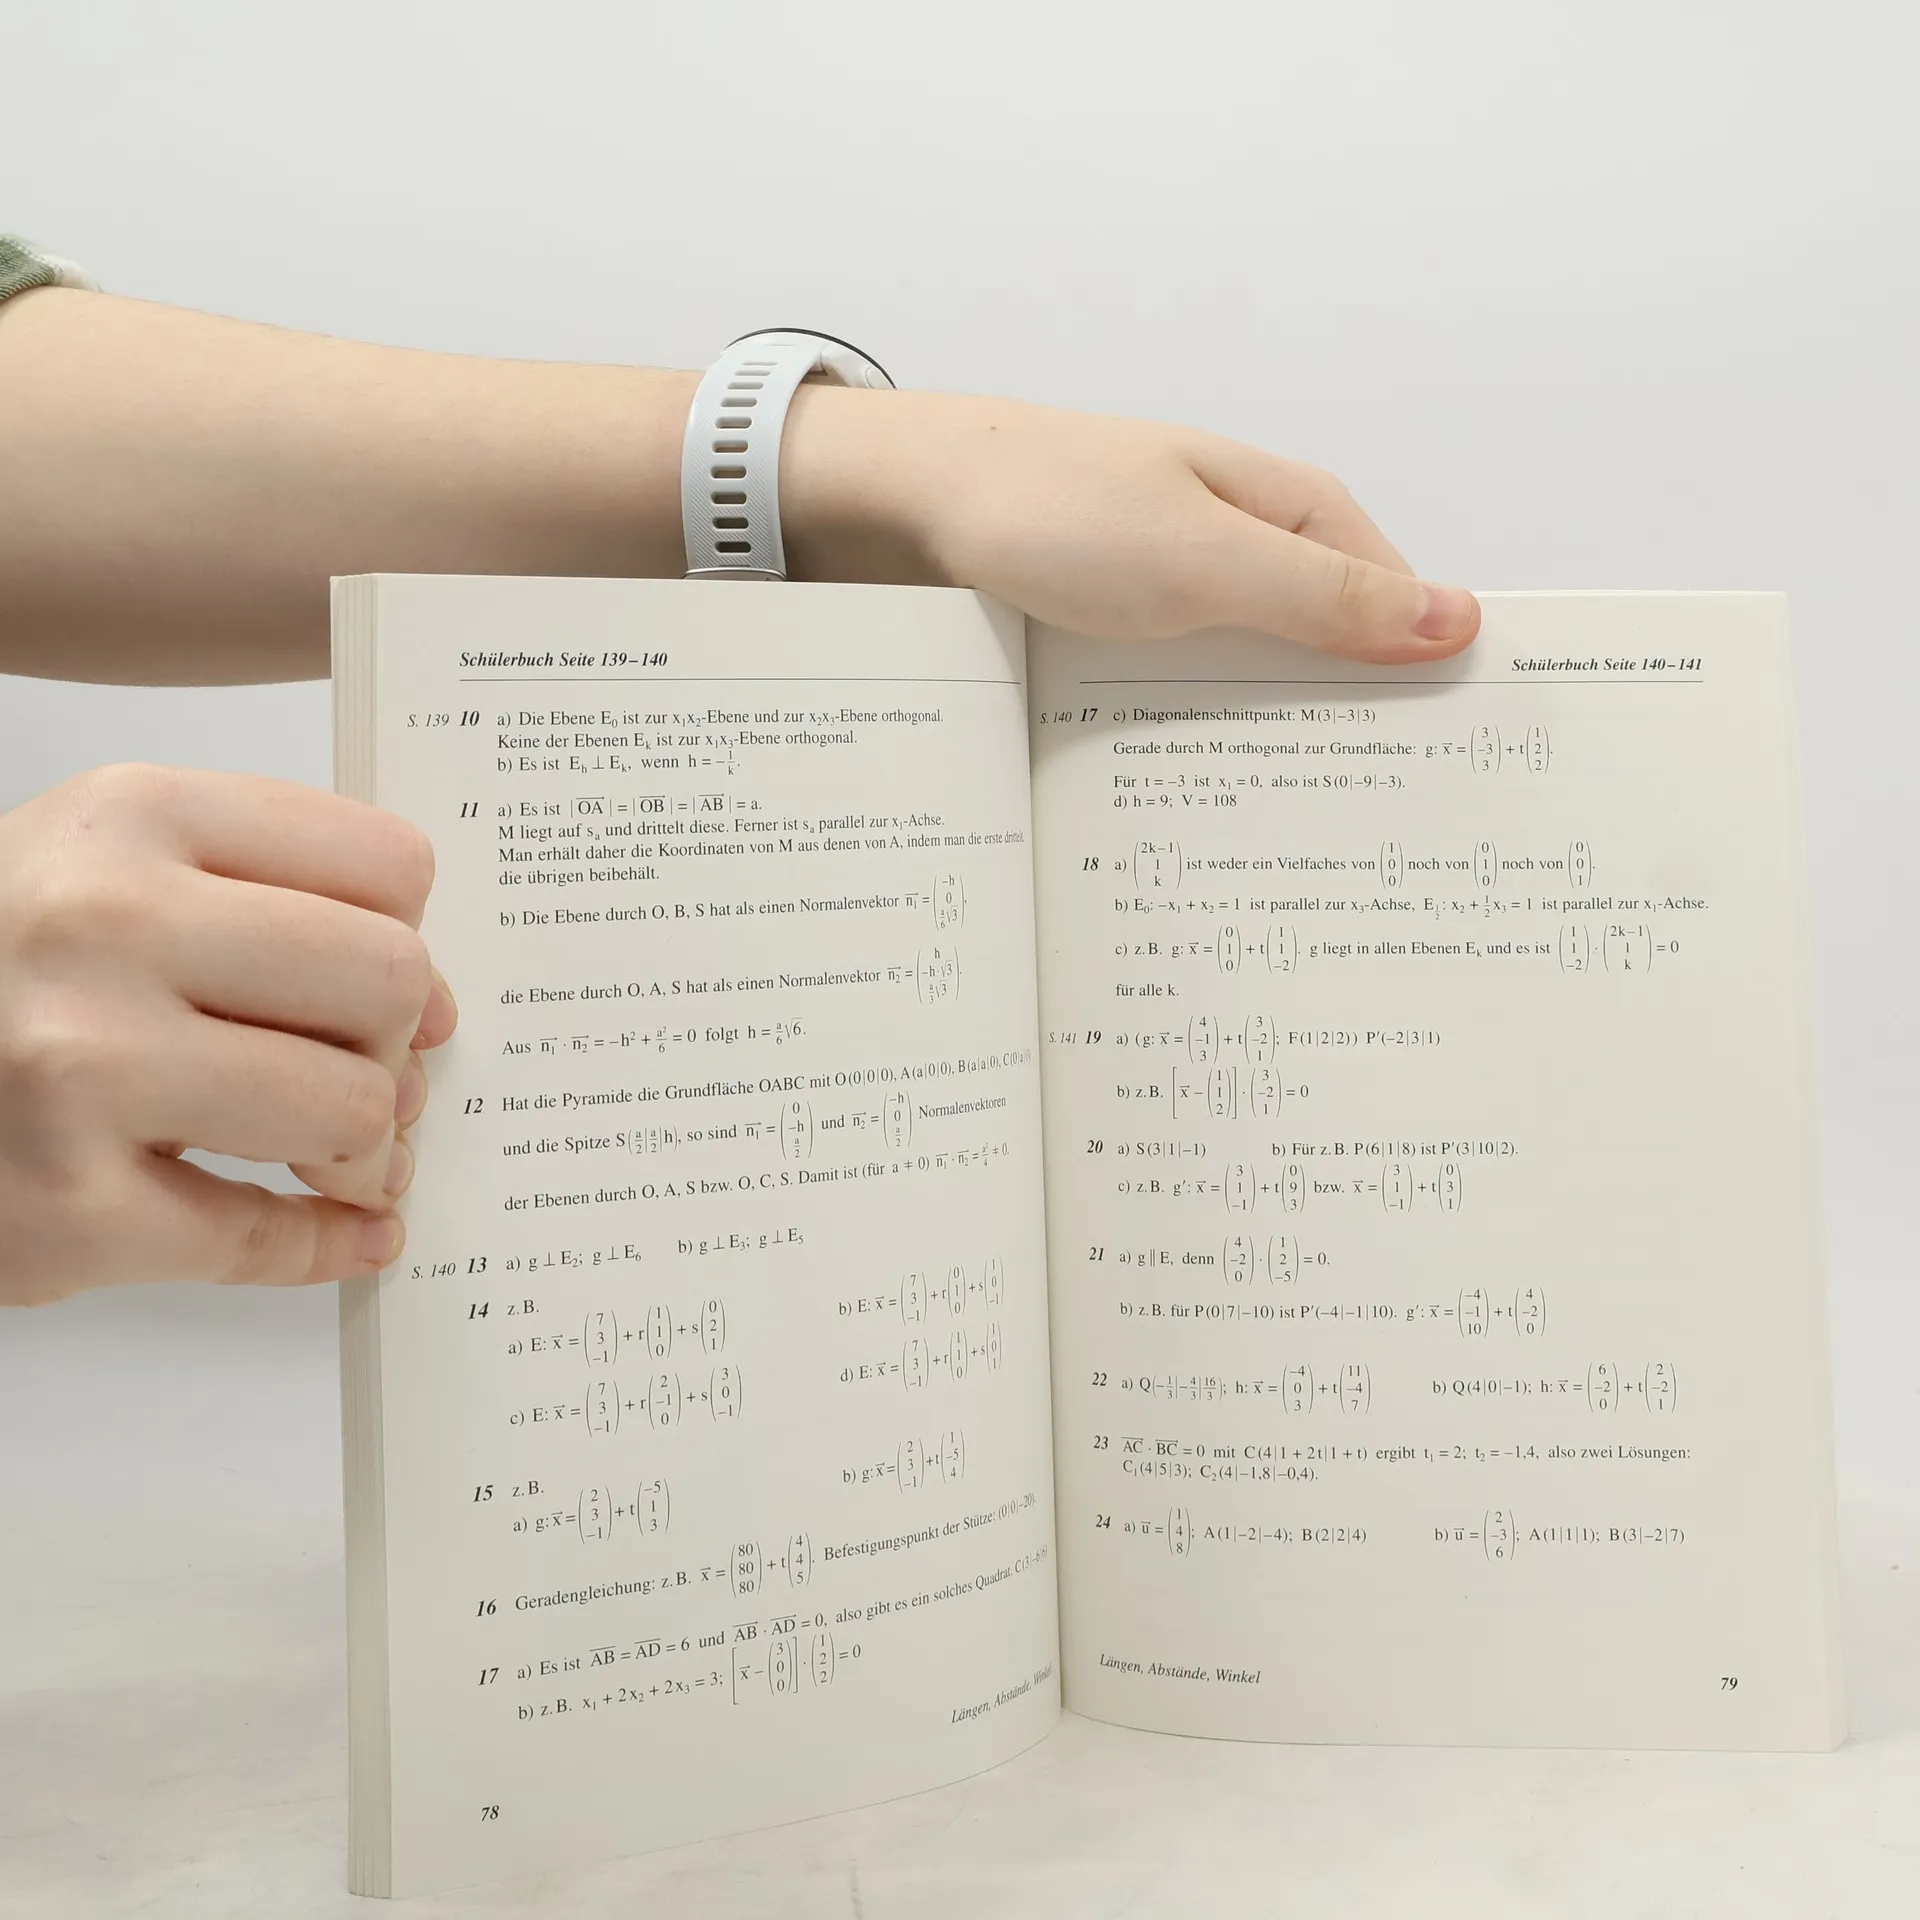 Schülerbuch Seite 139–140
S. 139 10 a) Die Ebene E₀ ist zur x₁x₂-Ebene und zur x₂x₃-Ebene orthogonal.
Keine der Ebenen Eₖ ist zur x₁x₃-Ebene orthogonal.
b) Es ist Eₕ ⊥ Eₖ, wenn h = −1/k.
11 a) Es ist |OA| = |OB| = |AB| = a.
M liegt auf sₐ und drittelt diese. Ferner ist sₐ parallel zur x₁-Achse.
Man erhält daher die Koordinaten von M aus denen von A, indem man die erste drittelt,
die übrigen beibehält.
b) Die Ebene durch O, B, S hat als einen Normalenvektor n₁ = (−h / 0 / a/6 √3),
die Ebene durch O, A, S hat als einen Normalenvektor n₂ = (h / −h·√3 / a/3 √3).
Aus n₁ · n₂ = −h² + a²/6 = 0 folgt h = a/6 √6.
12 Hat die Pyramide die Grundfläche OABC mit O(0|0|0), A(a|0|0), B(a|a|0), C(0|a|0)
und die Spitze S(a/2|a/2|h), so sind n₁ = (0 / −h / a/2) und n₂ = (−h / 0 / a/2) Normalenvektoren
der Ebenen durch O, A, S bzw. O, C, S. Damit ist (für a ≠ 0) n₁ · n₂ = a²/4 ≠ 0.
S. 140 13 a) g ⊥ E₂; g ⊥ E₆ b) g ⊥ E₃; g ⊥ E₅
14 z. B.
a) E: x = (7 / 3 / −1) + r(1 / 1 / 0) + s(0 / 2 / 1) b) E: x = (7 / 3 / −1) + r(0 / 1 / 0) + s(1 / 0 / −1)
c) E: x = (7 / 3 / −1) + r(2 / −1 / 0) + s(3 / 0 / −1) d) E: x = (7 / 3 / −1) + r(1 / 1 / 0) + s(1 / 0 / 1)
15 z. B.
a) g: x = (2 / 3 / −1) + t(−5 / 1 / 3) b) g: x = (2 / 3 / −1) + t(1 / −5 / 4)
16 Geradengleichung: z. B. x = (80 / 80 / 80) + t(4 / 4 / 5). Befestigungspunkt der Stütze: (0|0|−20).
17 a) Es ist AB = AD = 6 und AB · AD = 0, also gibt es ein solches Quadrat. C(3|−6|6)
b) z. B. x₁ + 2x₂ + 2x₃ = 3; [x − (3 / 0 / 0)] · (1 / 2 / 2) = 0
Längen, Abstände, Winkel
78
Schülerbuch Seite 140–141
S. 140 17 c) Diagonalenschnittpunkt: M(3|−3|3)
Gerade durch M orthogonal zur Grundfläche: g: x = (3 / −3 / 3) + t(1 / 2 / 2).
Für t = −3 ist x₁ = 0, also ist S(0|−9|−3).
d) h = 9; V = 108
18 a) (2k−1 / 1 / k) ist weder ein Vielfaches von (1 / 0 / 0) noch von (0 / 1 / 0) noch von (0 / 0 / 1).
b) E₀: −x₁ + x₂ = 1 ist parallel zur x₃-Achse, E½: x₂ + ½x₃ = 1 ist parallel zur x₁-Achse.
c) z. B. g: x = (0 / 1 / 0) + t(1 / 1 / −2). g liegt in allen Ebenen Eₖ und es ist (1 / 1 / −2) · (2k−1 / 1 / k) = 0
für alle k.
S. 141 19 a) (g: x = (4 / −1 / 3) + t(3 / −2 / 1); F(1|2|2)) P′(−2|3|1)
b) z. B. [x − (1 / 1 / 2)] · (3 / −2 / 1) = 0
20 a) S(3|1|−1) b) Für z. B. P(6|1|8) ist P′(3|10|2).
c) z. B. g′: x = (3 / 1 / −1) + t(0 / 9 / 3) bzw. x = (3 / 1 / −1) + t(0 / 3 / 1)
21 a) g ∥ E, denn (4 / −2 / 0) · (1 / 2 / −5) = 0.
b) z. B. für P(0|7|−10) ist P′(−4|−1|10). g′: x = (−4 / −1 / 10) + t(4 / −2 / 0)
22 a) Q(−1/3|−4/3|16/3); h: x = (−4 / 0 / 3) + t(11 / −4 / 7) b) Q(4|0|−1); h: x = (6 / −2 / 0) + t(2 / −2 / 1)
23 AC · BC = 0 mit C(4|1 + 2t|1 + t) ergibt t₁ = 2; t₂ = −1,4, also zwei Lösungen:
C₁(4|5|3); C₂(4|−1,8|−0,4).
24 a) u = (1 / 4 / 8); A(1|−2|−4); B(2|2|4) b) u = (2 / −3 / 6); A(1|1|1); B(3|−2|7)
Längen, Abstände, Winkel
79